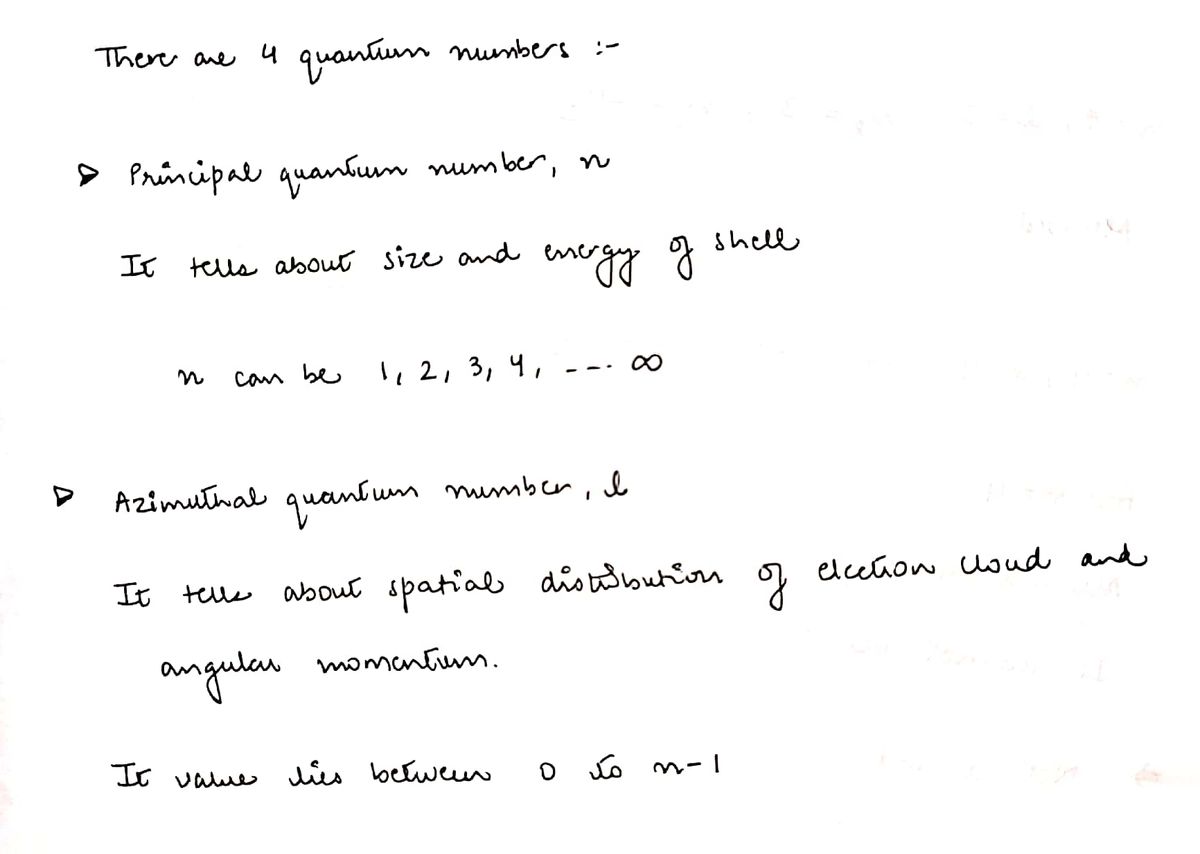 There are 4 quantum numbers :-
▷ Principal quantum number, n
It tells about size and energy of shell
n can be 1, 2, 3, 4, ---. ∞
▷ Azimuthal quantum number, l
It tells about spatial distribution of electron cloud and
angular momentum.
It value lies between 0 to n-1